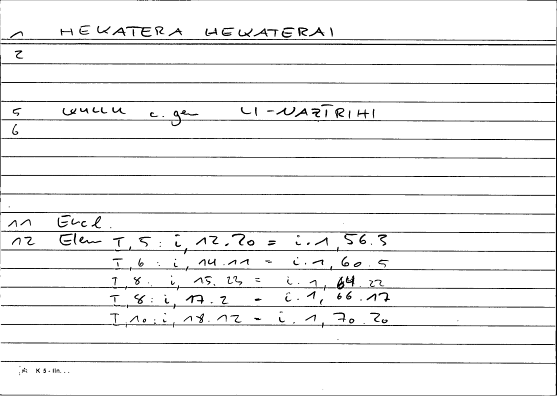 1 HEKATERA HEKATERAI
2
5 kullu c. gen LI-NAZĪRIHI
6
11 Eucl.
12 Elem I, 5 : i, 12.20 = i.1, 56.3
I, 6 : i, 14.11 = i.1, 60.5
I, 8 : i, 15.23 = i.1, 64.22
I, 8 : i, 17.2 = i.1, 66.17
I, 10 : i, 18.12 = i.1, 70.20
K 5 -